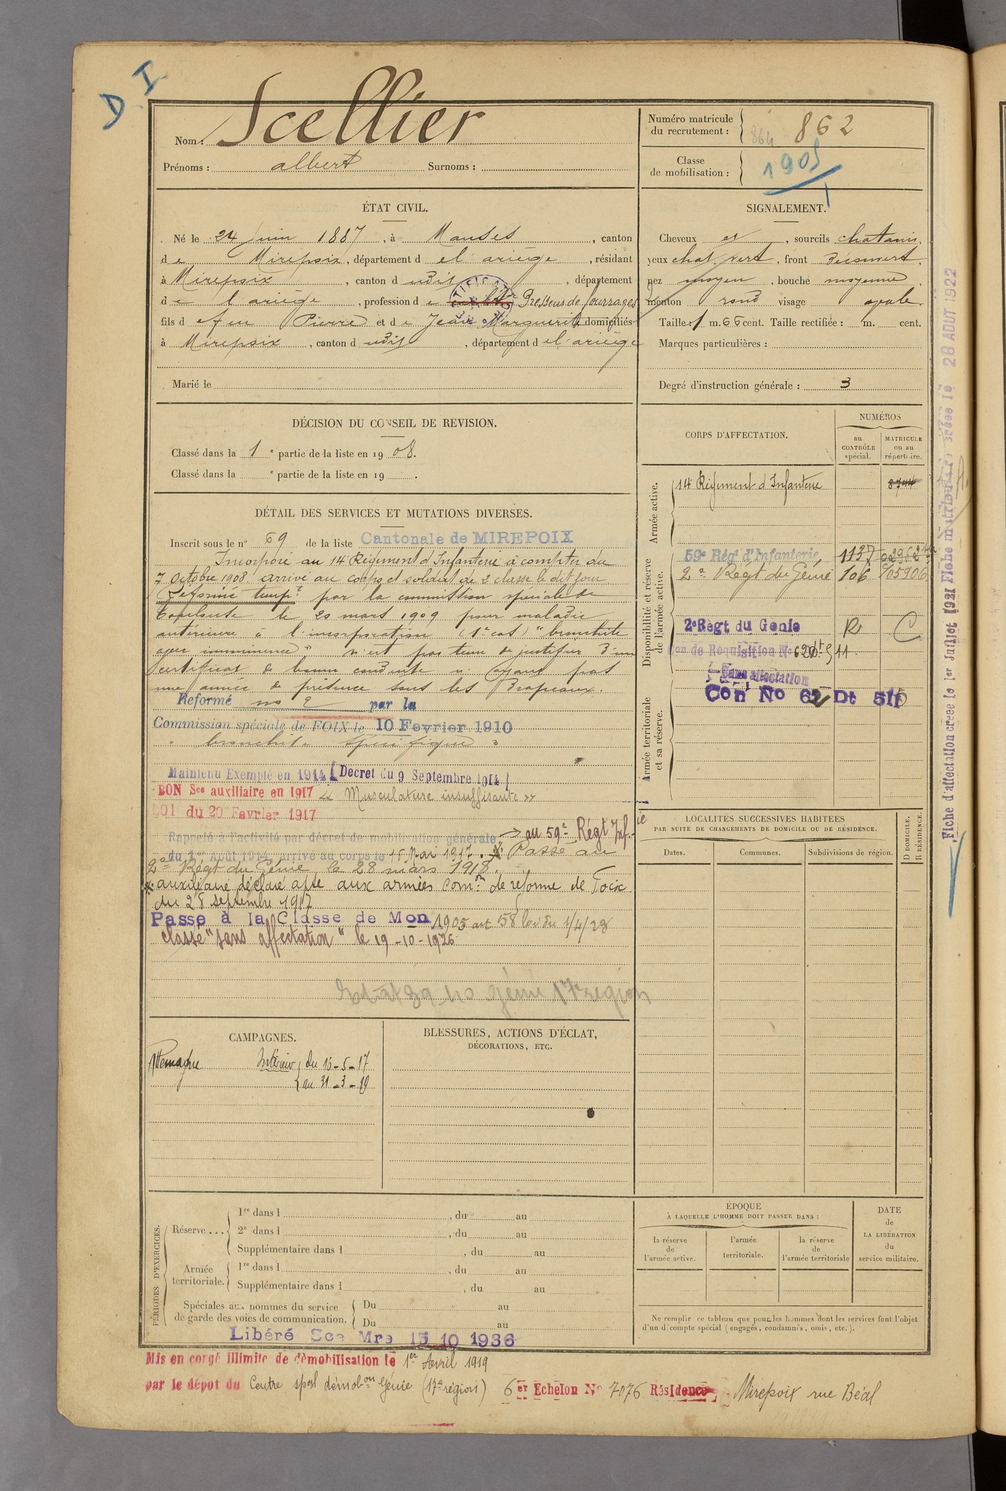 D I
Nom : Scellier
Prénoms : albert Surnoms :
Numéro matricule
du recrutement : 864 862
Classe
de mobilisation : 1905
ÉTAT CIVIL.
Né le 24 Juin 1887, à Manses, canton
de Mirepoix, département d el ariège, résidant
à Mirepoix, canton d udit, département
de l ariège, profession de Presseur de fourrages
fils d efeu Pierre et de Jean Marguerite domiciliés
à Mirepoix, canton d udit, département d el ariège
Marié le
SIGNALEMENT.
Cheveux et, sourcils chatains,
yeux chat vert, front
nez moyen, bouche moyenne
menton rond visage ovale
Taille : 1 m. 66 cent. Taille rectifiée : m. cent.
Marques particulières :
Degré d'instruction générale : 3
DÉCISION DU CONSEIL DE REVISION.
Classé dans la 1e partie de la liste en 1908.
Classé dans la e partie de la liste en 19 .
DÉTAIL DES SERVICES ET MUTATIONS DIVERSES.
Inscrit sous le n° 69 de la liste Cantonale de MIREPOIX
Incorporé au 14e Régiment d'Infanterie à compter du
7 Octobre 1908. arrivé au corps et soldat de 2e classe le dit jour
Réformé temp.re par la commission spéciale de
le 20 mars 1909 pour maladie
antérieure à l'incorporation (1e cat) "bronchite
" n'est pas tenu de justifier d'un
certificat de bonne conduite n'ayant pas
une année de présence sous les Drapeaux.
Réformé no 2 par la
Commission spéciale de FOIX le 10 Fevrier 1910
" bronchite spécifique "
Maintenu Exempté en 1914 (Décret du 9 Septembre 1914)
BON Sce auxiliaire en 1917 "Musculature insuffisante"
LOI du 20 Fevrier 1917
Rappelé à l'activité par décret de mobilisation générale → au 59e Régt Inf.ie
du 1er Août 1914, arrivé au corps le 15 Mai 1917. Passé au
2e Régt du Génie le 28 mars 1918.
auxiliaire déclaré apte aux armées Com.on de réforme de Foix
du 28 septembre 1917
Passé à la Classe de Mon 1905 art 58 loi du 1/4/28
classé "sans affectation" le 19-10-1926
génie 17e région
CORPS D'AFFECTATION.
NUMÉROS
au
CONTRÔLE
spécial.
MATRICULE
ou au
répertoire.
Armée active.
14 Régiment d'Infanterie
Disponibilité et réserve
de l'armée active.
59e Régt d'Infanterie 1137
2e Régt du Génie 106
2e Régt du Génie R C
on de Requisition No
Sans affectation
Con No 62 Dt 511
Armée territoriale
et sa réserve.
Fiche d'affectation créée le 1er Juillet 1921 Fiche matriculaire créée le 28 AOUT 1922
LOCALITÉS SUCCESSIVES HABITÉES
PAR SUITE DE CHANGEMENTS DE DOMICILE OU DE RÉSIDENCE.
Dates.
Communes.
Subdivisions de région.
D DOMICILE.
R RÉSIDENCE.
CAMPAGNES.
Allemagne Intérieur du 15-5-17
au 31-3-19
BLESSURES, ACTIONS D'ÉCLAT,
DÉCORATIONS, ETC.
PÉRIODES D'EXERCICES.
Réserve...
1re dans l , du au
2e dans l , du au
Supplémentaire dans l , du au
Armée
territoriale.
1re dans l , du au
Supplémentaire dans l , du au
Spéciales aux hommes du service
de garde des voies de communication.
Du au
Du au
Libéré Sce Mre 15 10 1936
ÉPOQUE
À LAQUELLE L'HOMME DOIT PASSER DANS :
la réserve
de
l'armée active.
l'armée
territoriale.
la réserve
de
l'armée territoriale
DATE
de
LA LIBÉRATION
du
service militaire.
Ne remplir ce tableau que pour les hommes dont les services font l'objet
d'un décompte spécial (engagés, condamnés, omis, etc.).
Mis en congé illimité de démobilisation le 1er Avril 1919
par le dépôt du Centre spal démob.on Génie (17e région) 6er Echelon No 7076 Résidence Mirepoix rue Béal